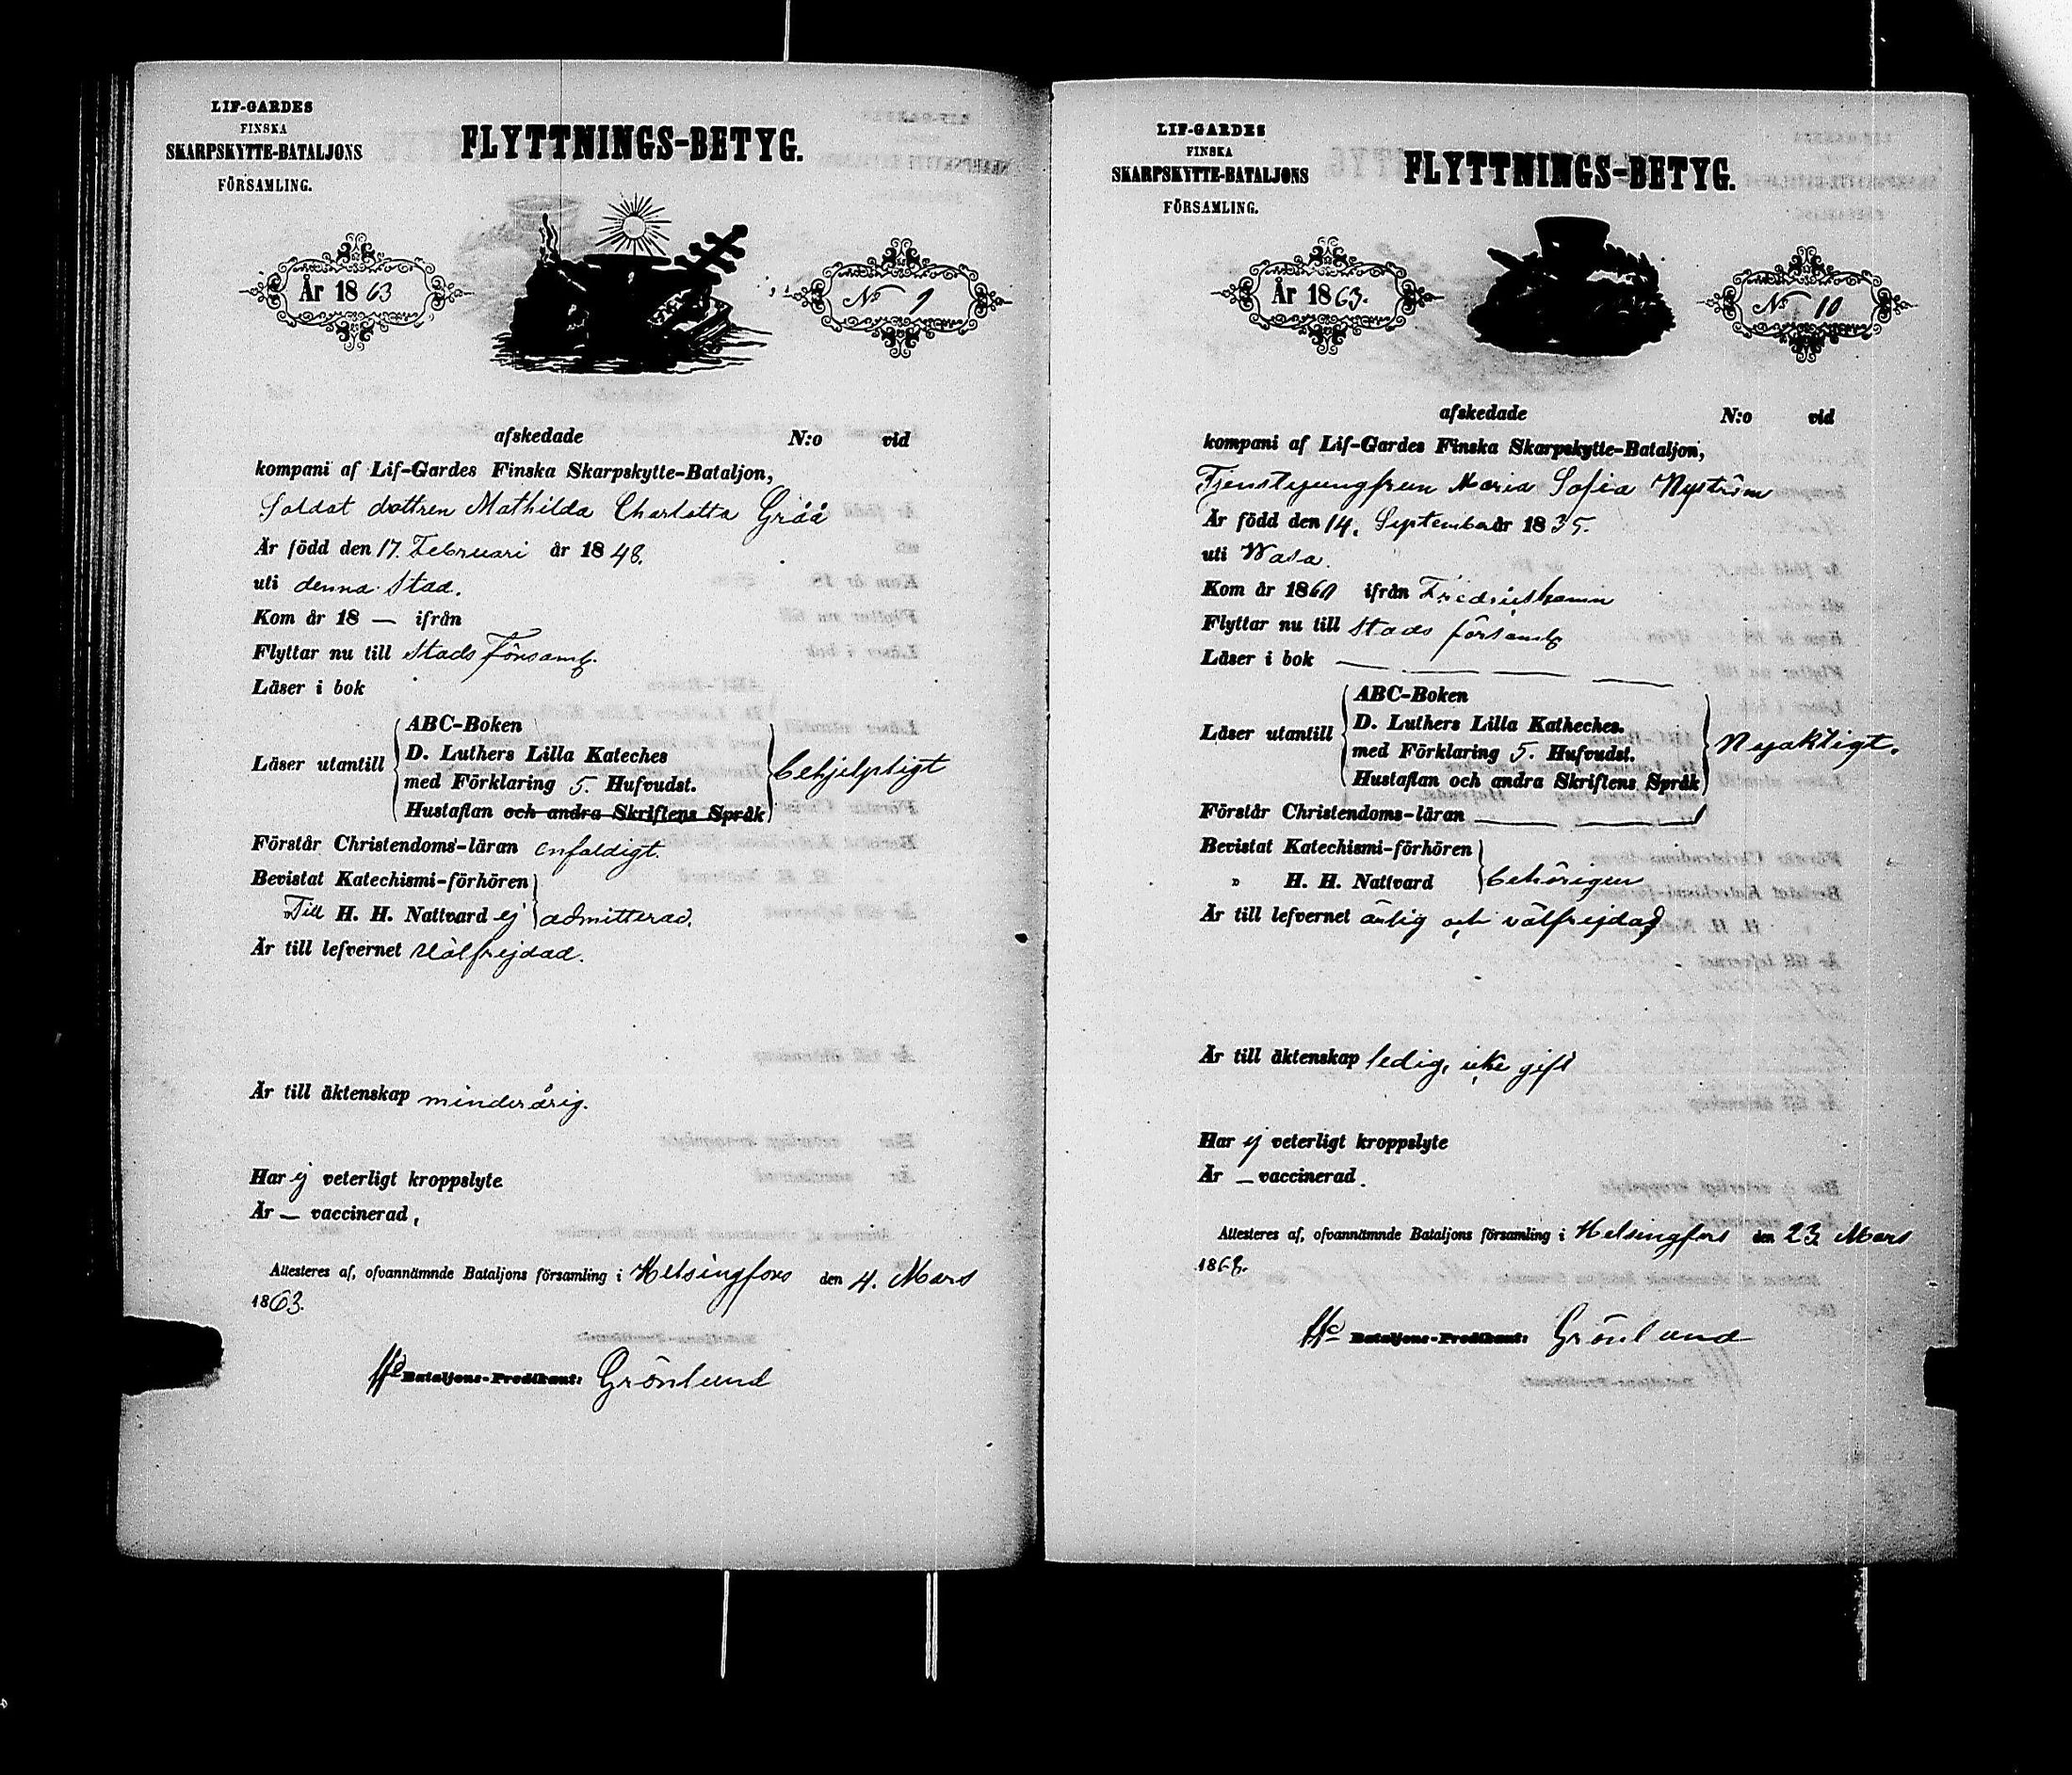 LIF-GARDES
FINSKA
SKARPSKYTTE-BATALJONS
FÖRSAMLING.
FLYTTNINGS-BETYG.
År 1863
No 9
afskedade N:o vid
kompani af Lif-Gardes Finska Skarpskytte-Bataljon,
Soldat dottren Mathilda Charlotta Gråå
Är född den 17. Februari år 1848.
uti denna Stad.
Kom år 18 — ifrån
Flyttar nu till Stads Församl.
Läser i bok
ABC-Boken
D. Luthers Lilla Kateches
Läser utantill med Förklaring 5. Hufvudst. behjelpligt
Hustaflan och andra Skriftens Språk
Förstår Christendoms-läran enfaldigt.
Bevistat Katechismi-förhören
Till H. H. Nattvard ej admitterad.
Är till lefvernet välfrejdad.
Är till äktenskap minderårig.
Har ej veterligt kroppslyte
Är — vaccinerad,
Attesteres af, ofvannämnde Bataljons församling i Helsingfors den 4. Mars
1863.
Bataljons-Predikant: Grönlund
LIF-GARDES
FINSKA
SKARPSKYTTE-BATALJONS
FÖRSAMLING.
FLYTTNINGS-BETYG.
År 1863.
No 10
afskedade N:o vid
kompani af Lif-Gardes Finska Skarpskytte-Bataljon,
Tjenstejungfrun Maria Sofia Nyström
Är född den 14. September år 1835.
uti Wasa.
Kom år 1860 ifrån Fredrikshamn
Flyttar nu till Stads församl
Läser i bok — — — —
ABC-Boken
D. Luthers Lilla Katheches.
Läser utantill med Förklaring 5. Hufvudst. Nöjaktigt.
Hustaflan och andra Skriftens Språk
Förstår Christendoms-läran — — —
Bevistat Katechismi-förhören
" H. H. Nattvard behörigen
Är till lefvernet ärlig och välfrejdad
Är till äktenskap ledig, icke gift
Har ej veterligt kroppslyte
Är — vaccinerad.
Attesteres af, ofvannämnde Bataljons församling i Helsingfors den 23 Mars
1863.
Bataljons-Predikant: Grönlund